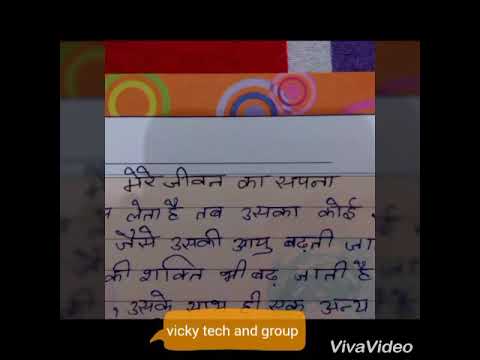 मेरे जीवन का सपना
लेता है तब उसका कोई
जैसे उसकी आयु बढ़ती जा
की शक्ति भी बढ़ जाती है
, उसके साथ ही एक अन्य
vicky tech and group
VivaVideo